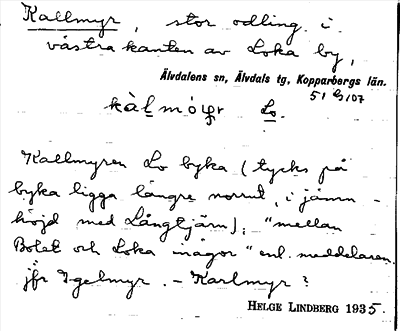 Kallmyr, stor odling i
västra kanten av Loka by,
Älvdalens sn, Älvdals tg, Kopparbergs län.
51 G 107
Lo.
Kallmyren Lo byka (tycks på
byka ligga längre norrut, i jämn-
höjd med Långtjärn); "mellan
Bolet och Loka inägor" enl. meddelaren.
jfr Igelmyr. - Karlmyr?
HELGE LINDBERG 1935.